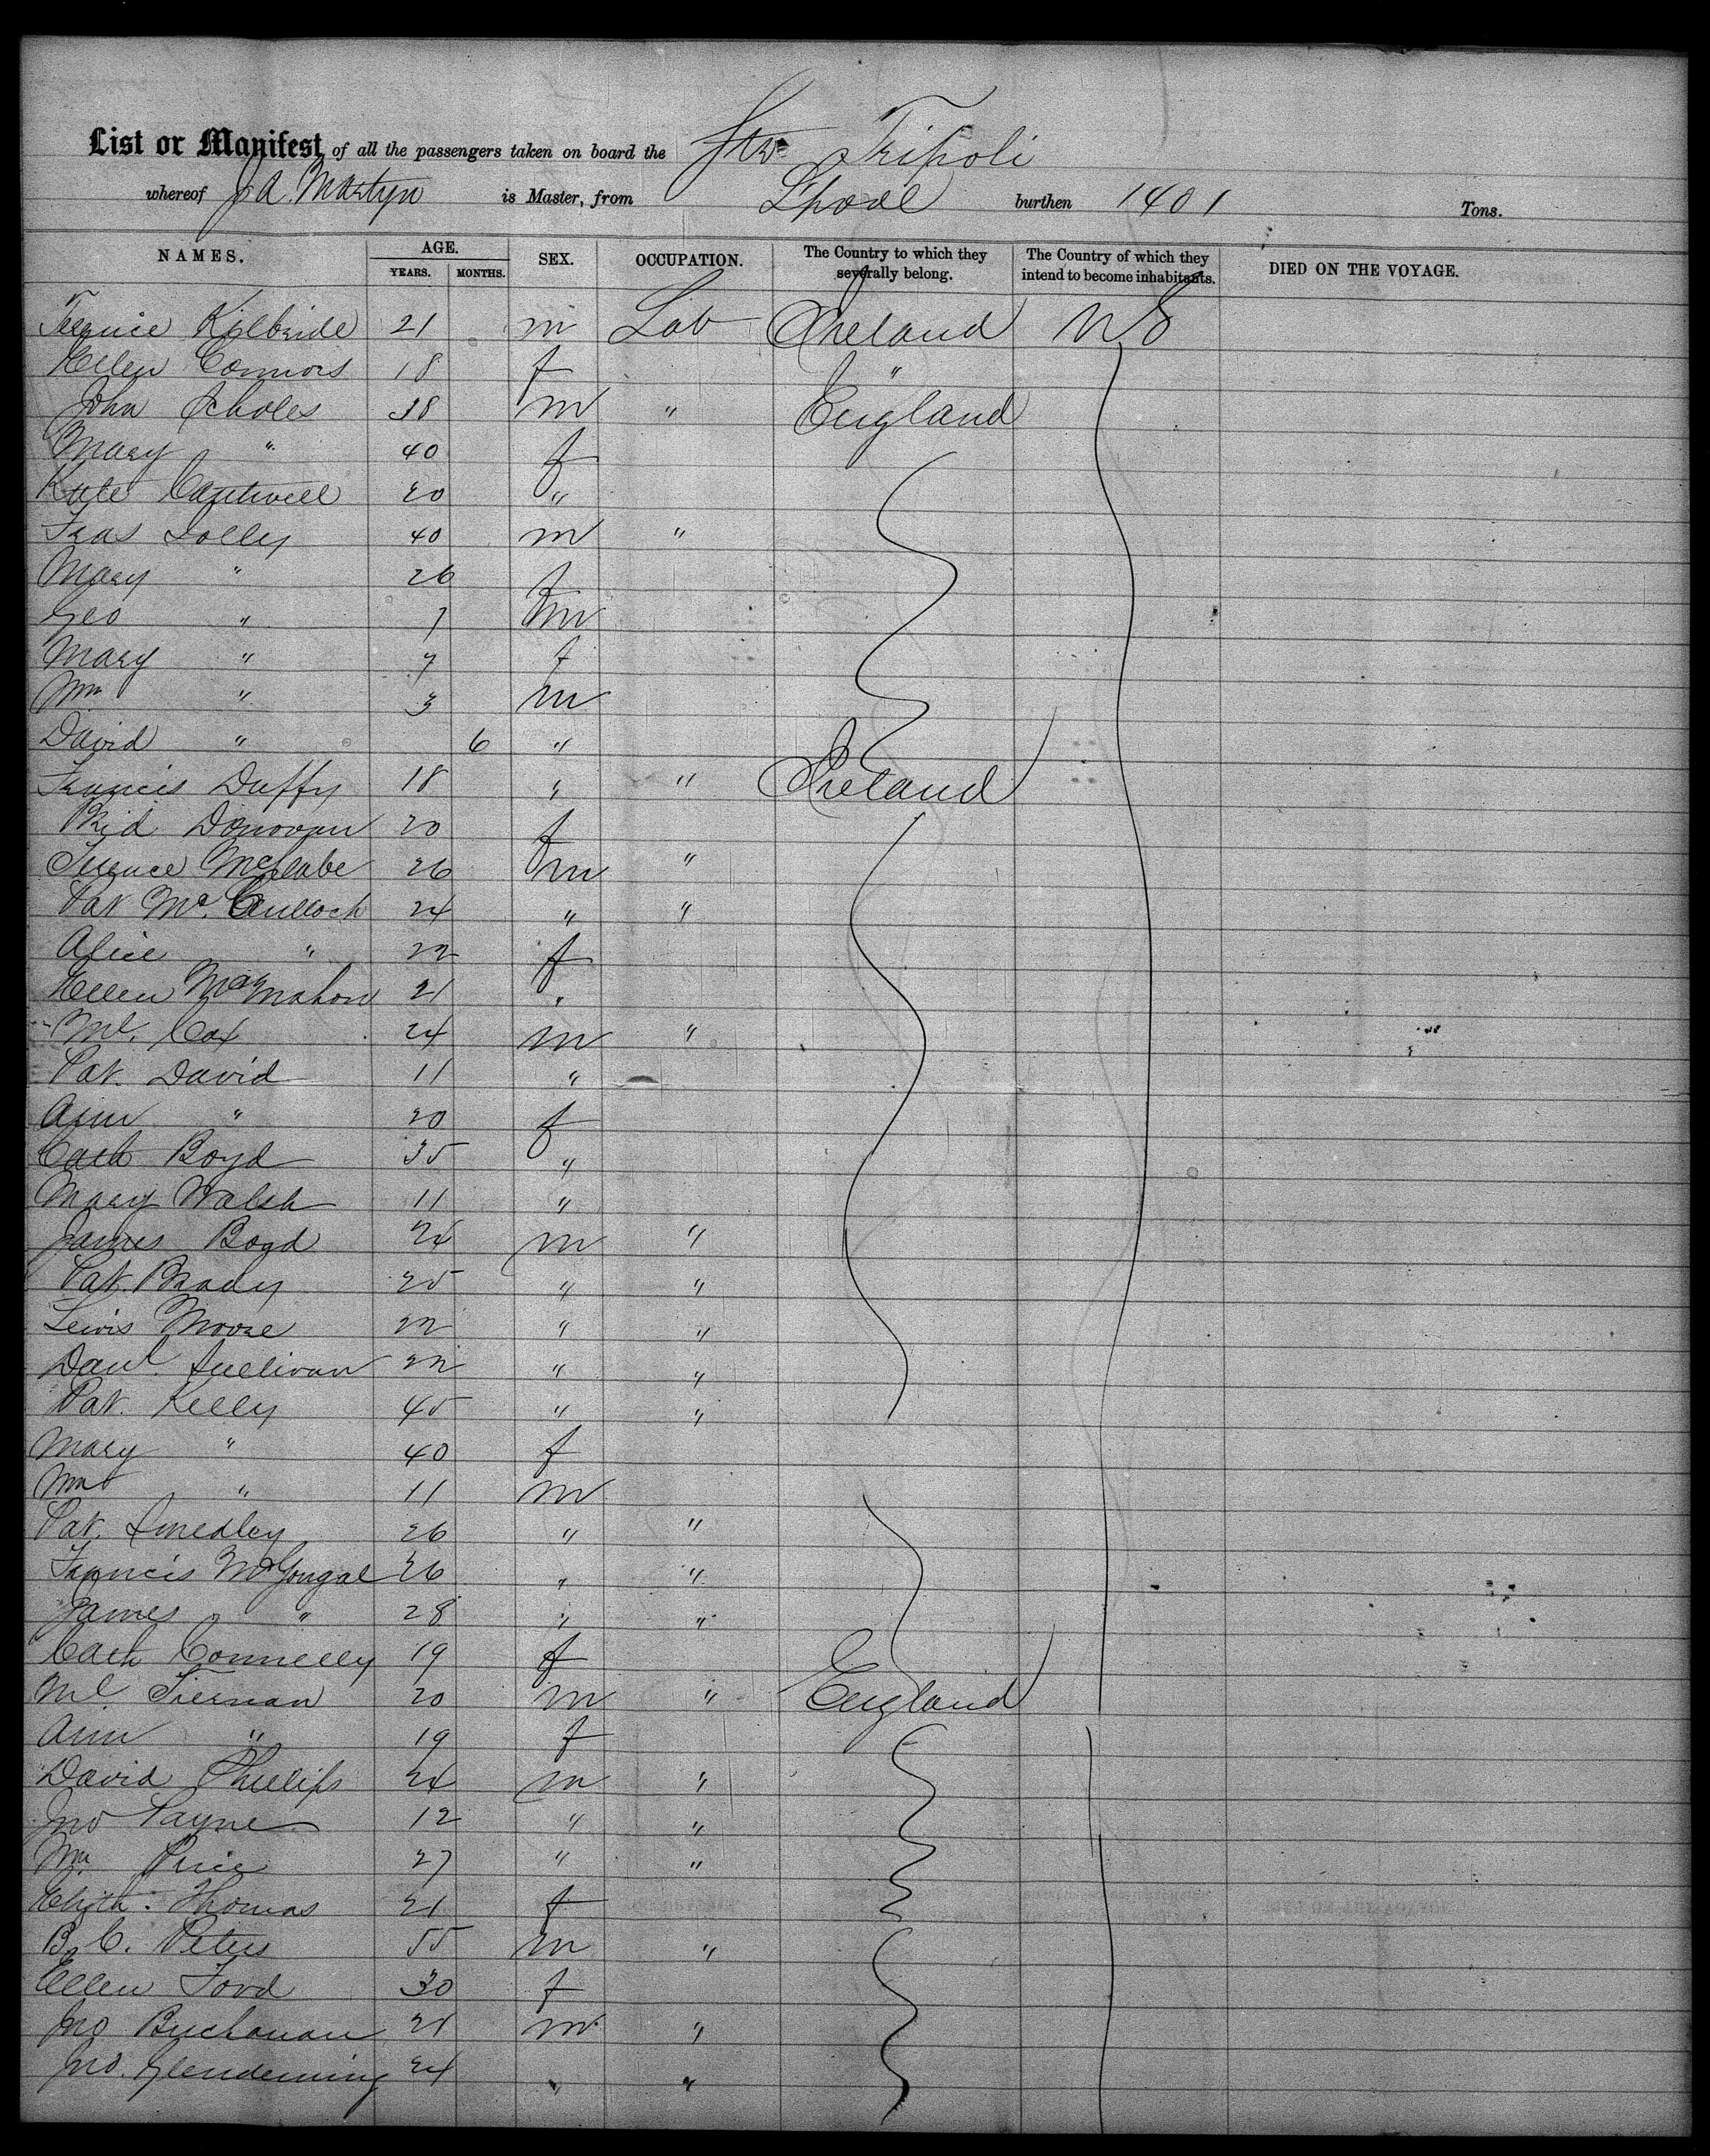 List or Manifest of all the passengers taken on board the Str Tripoli
whereof J A. Martyn is Master, from Lpool burthen 1401 Tons.
NAMES. AGE. SEX. OCCUPATION. The Country to which they severally belong. The Country of which they intend to become inhabitants. DIED ON THE VOYAGE.
YEARS. MONTHS.
Terence Kilbride 21 m Lab Ireland US
Ellen Connors 18 f "
John Scholes 38 m " England
Mary " 40 f
Kate Cantwell 20 "
Thos Lolley 40 m "
Mary " 26 f
Geo " 7 m
Mary " 7 f
Wm " 3 m
David " 6 "
Francis Duffy 18 " " Ireland
Brid Donovan 20 f
Terence McCabe 26 m "
Pat Mc. Culloch 24 " "
Alice " 22 f
Ellen MacMahon 21 "
Ml. Cox 24 m "
Pat. David 11 "
Ann " 20 f
Cath Boyd 35 "
Mary Walsh 11 "
James Boyd 24 m "
Pat. Brady 25 " "
Lewis Moore 22 " "
Danl. Sullivan 22 " "
Pat. Kelly 45 " "
Mary " 40 f
Wm " 11 m
Pat. Smedley 26 " "
Francis McGongal 26 " "
James " 28 " "
Cath Connelly 19 f
Ml Tiernan 20 m " England
Ann " 19 f
David Phillips 24 m "
Jno Payne 12 " "
Wm. Price 27 " "
Elizth. Thomas 21 f
B. C. Peters 55 m "
Ellen Ford 30 f
Jno Buchanan 21 m "
Jno. Glendenning 24 " "